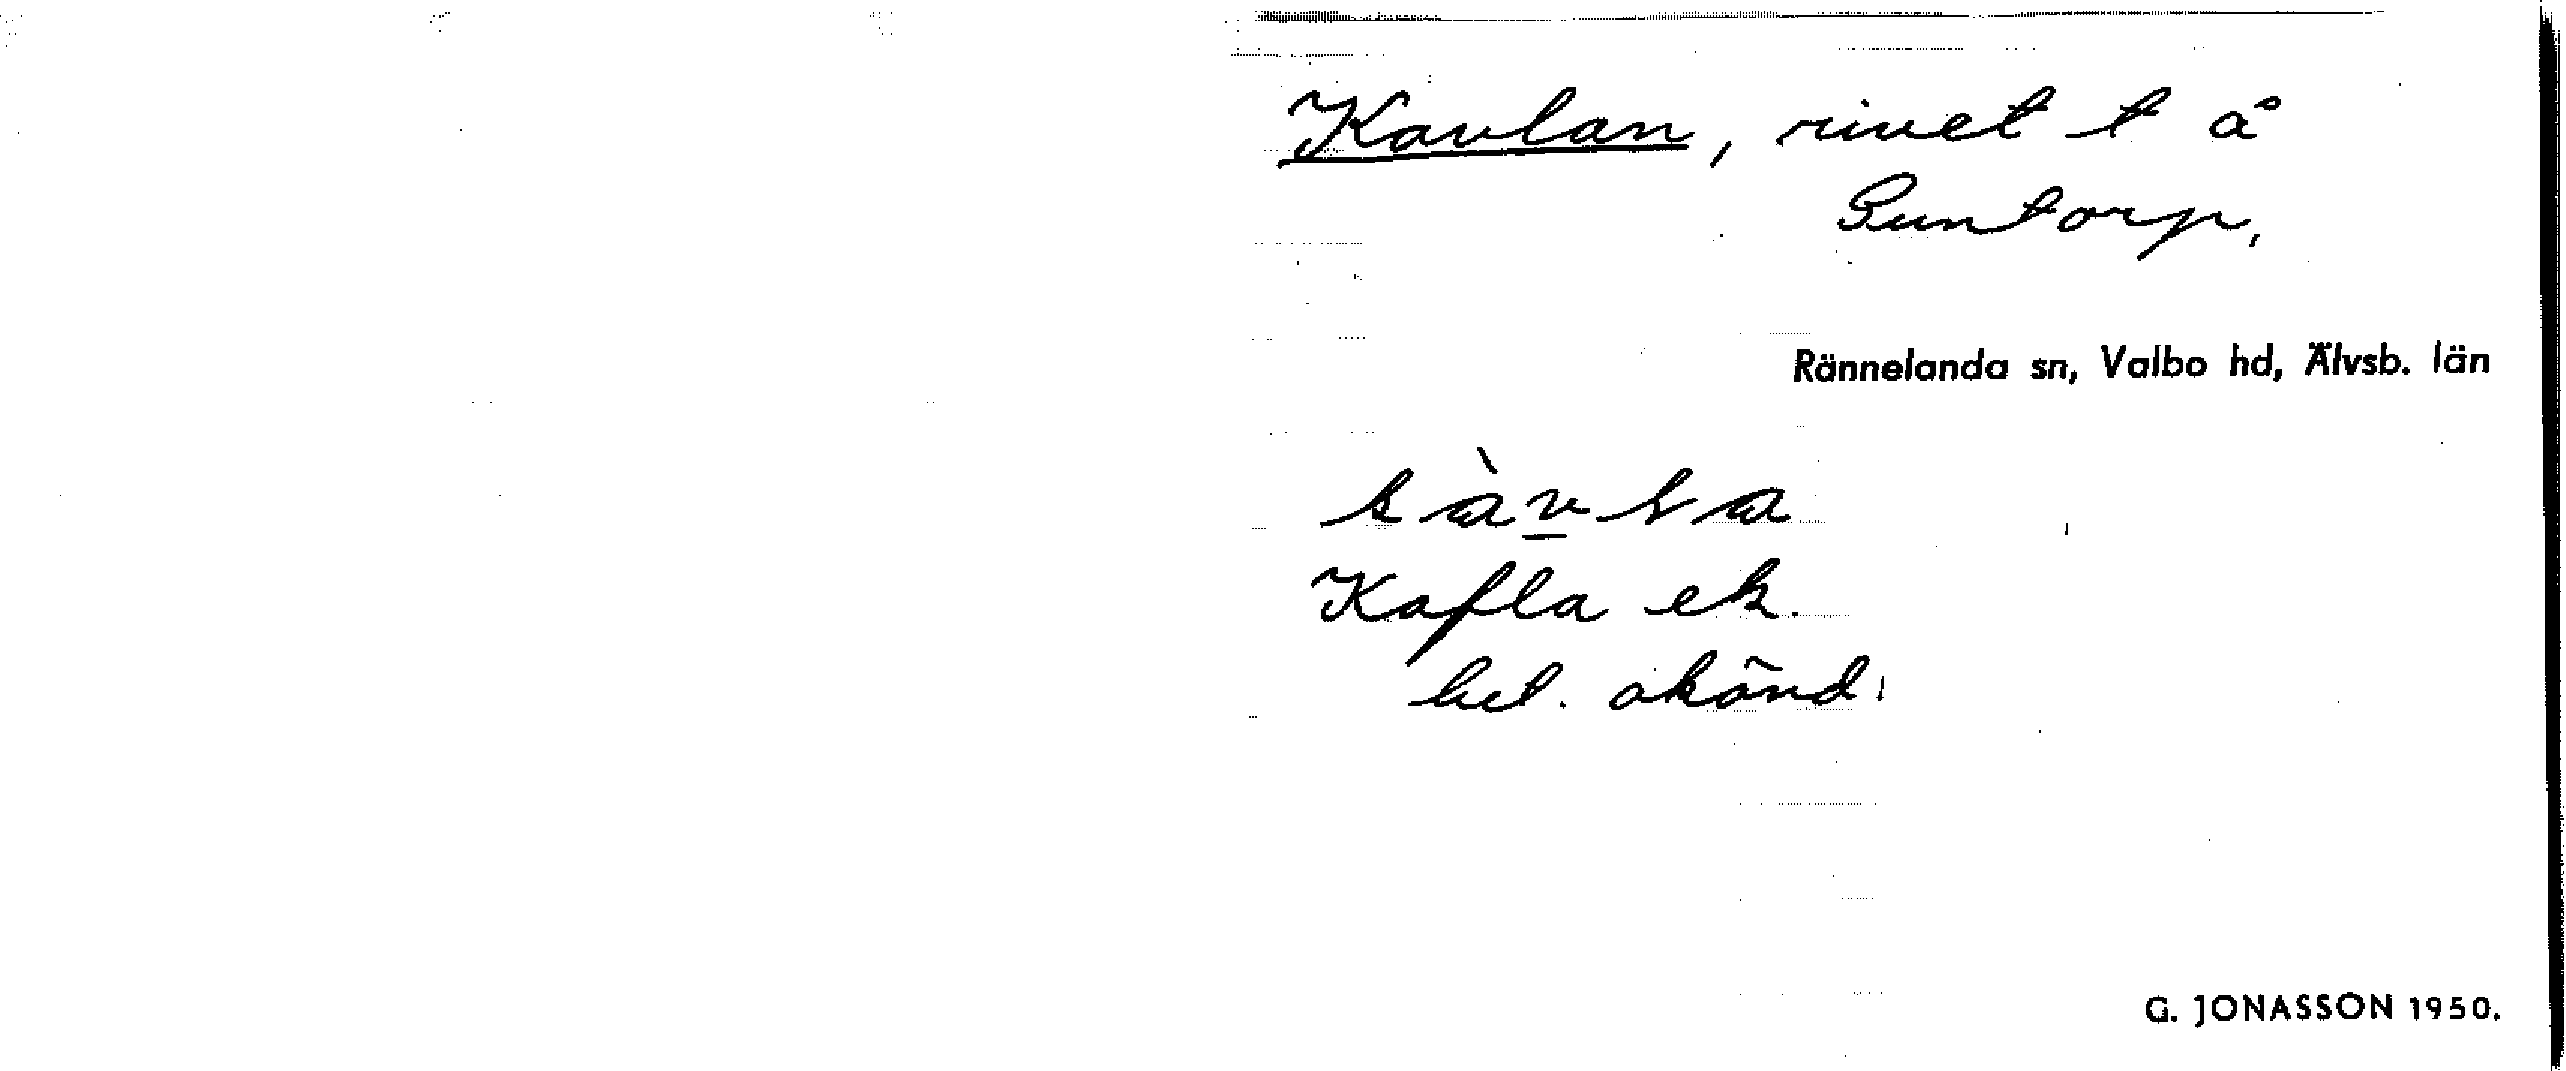 Kavlan, rivet t å
Suntorp,
Rännelanda sn, Valbo hd, Älvsb. län
kàvla
Kafla ek.
bel. okänd.
G. JONASSON 1950.